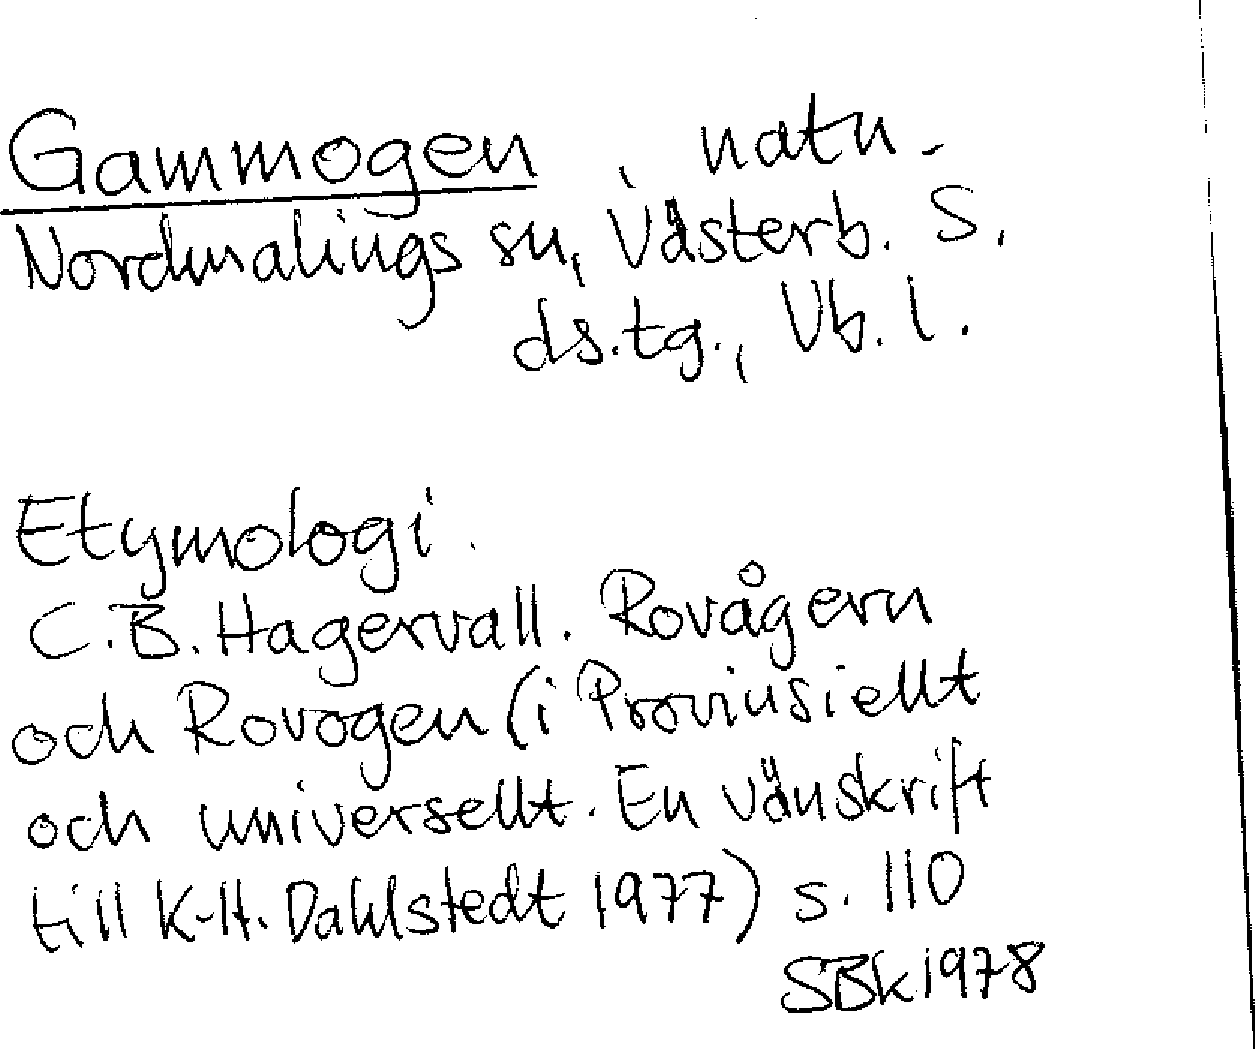 Gammogen, natn.
Nordmalings sn, Västerb. S.
ds.tg., Vb. l.
Etymologi.
C.B. Hagervall. Rovågern
och Rovogen (i Provinsiellt
och universellt. En vänskrift
till K-H. Dahlstedt 1977) s. 110
SBk 1978